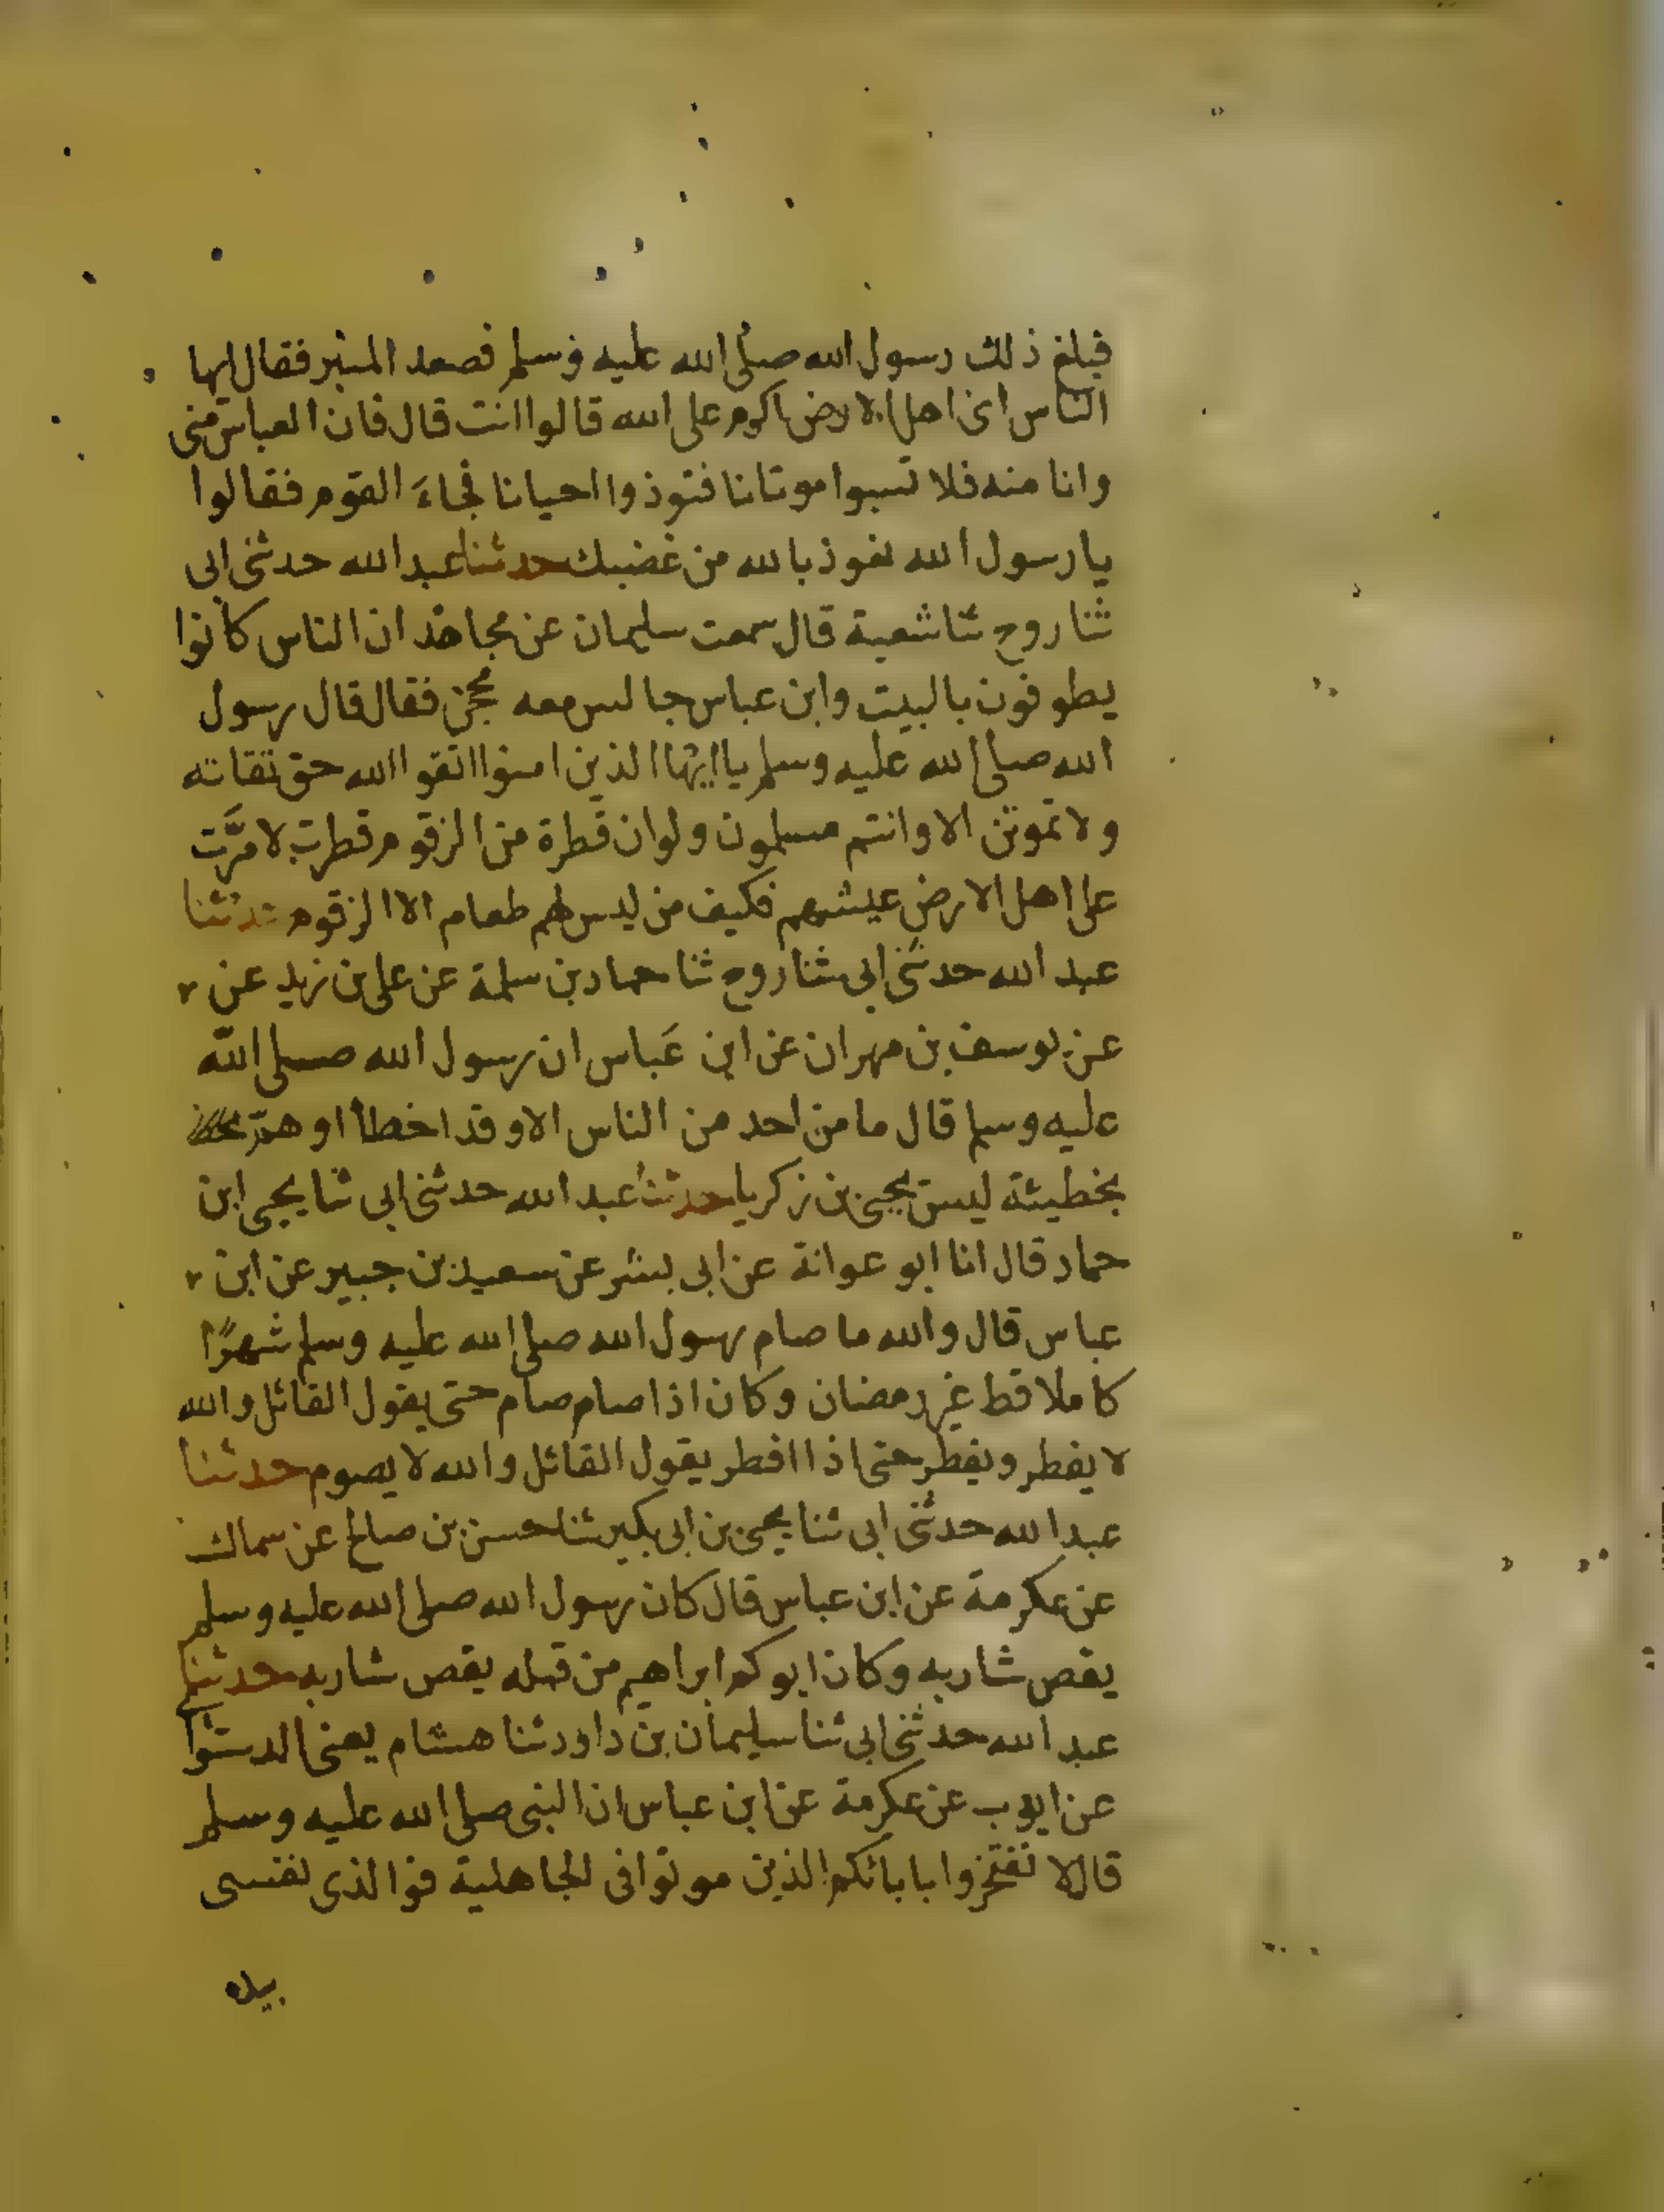 فبلغ ذلك رسول الله صلى الله عليه وسلم فصعد المنبر فقال ايها
الناس اى اهل الارض اكرم على الله قالوا انت قال فان العباس منى
وانا منه فلا تسبوا موتانا فتوذوا احيانا فجاءَ القوم فقالوا
يا رسول الله نعوذ بالله من غضبك حدثنا عبد الله حدثنى ابى
ثنا روح ثنا شعبة قال سمعت سليمان عن مجاهد ان الناس كانوا
يطوفون بالبيت وابن عباس جالس معه محجن فقال قال رسول
الله صلى الله عليه وسلم يا ايها الذين امنوا اتقوا الله حق تقاته
ولا تموتن الا وانتم مسلمون ولو ان قطرة من الزقوم قطرت لامرَّت
على اهل الارض عيشهم فكيف من ليس لهم طعام الا الزقوم حدثنا
عبد الله حدثنى ابى ثنا روح ثنا حماد بن سلمة عن على بن زيد عن
عن يوسف بن مهران عن ابن عَباس ان رسول الله صلى الله
عليه وسلم قال ما من احد من الناس الا وقد اخطأ او همّ
بخطيئة ليس يحيى بن زكريا حدثنا عبد الله حدثنى ابى ثنا يحيى ابن
حماد قال انا ابو عوانة عن ابى بشر عن سعيد بن جبير عن ابن
عباس قال والله ما صام رسول الله صلى الله عليه وسلم شهرًا
كاملا قط غير رمضان وكان اذا صام صام حتى يقول القائل والله
لا يفطر ويفطر حتى اذا افطر يقول القائل والله لا يصوم حدثنا
عبد الله حدثنى ابى ثنا يحيى بن ابى بكير ثنا حسن بن صالح عن سماك
عن عكرمة عن ابن عباس قال كان رسول الله صلى الله عليه وسلم
يقص شاربه وكان ابوكم ابراهيم من قبله يقص شاربه حدثنا
عبد الله حدثنى ابى ثنا سليمان بن داود ثنا هشام يعنى الدستوا
عن ايوب عن عكرمة عن ابن عباس ان النبى صلى الله عليه وسلم
قال لا تفتخروا بابائكم الذين موتوا فى الجاهلية فوالذى نفسى
بيده